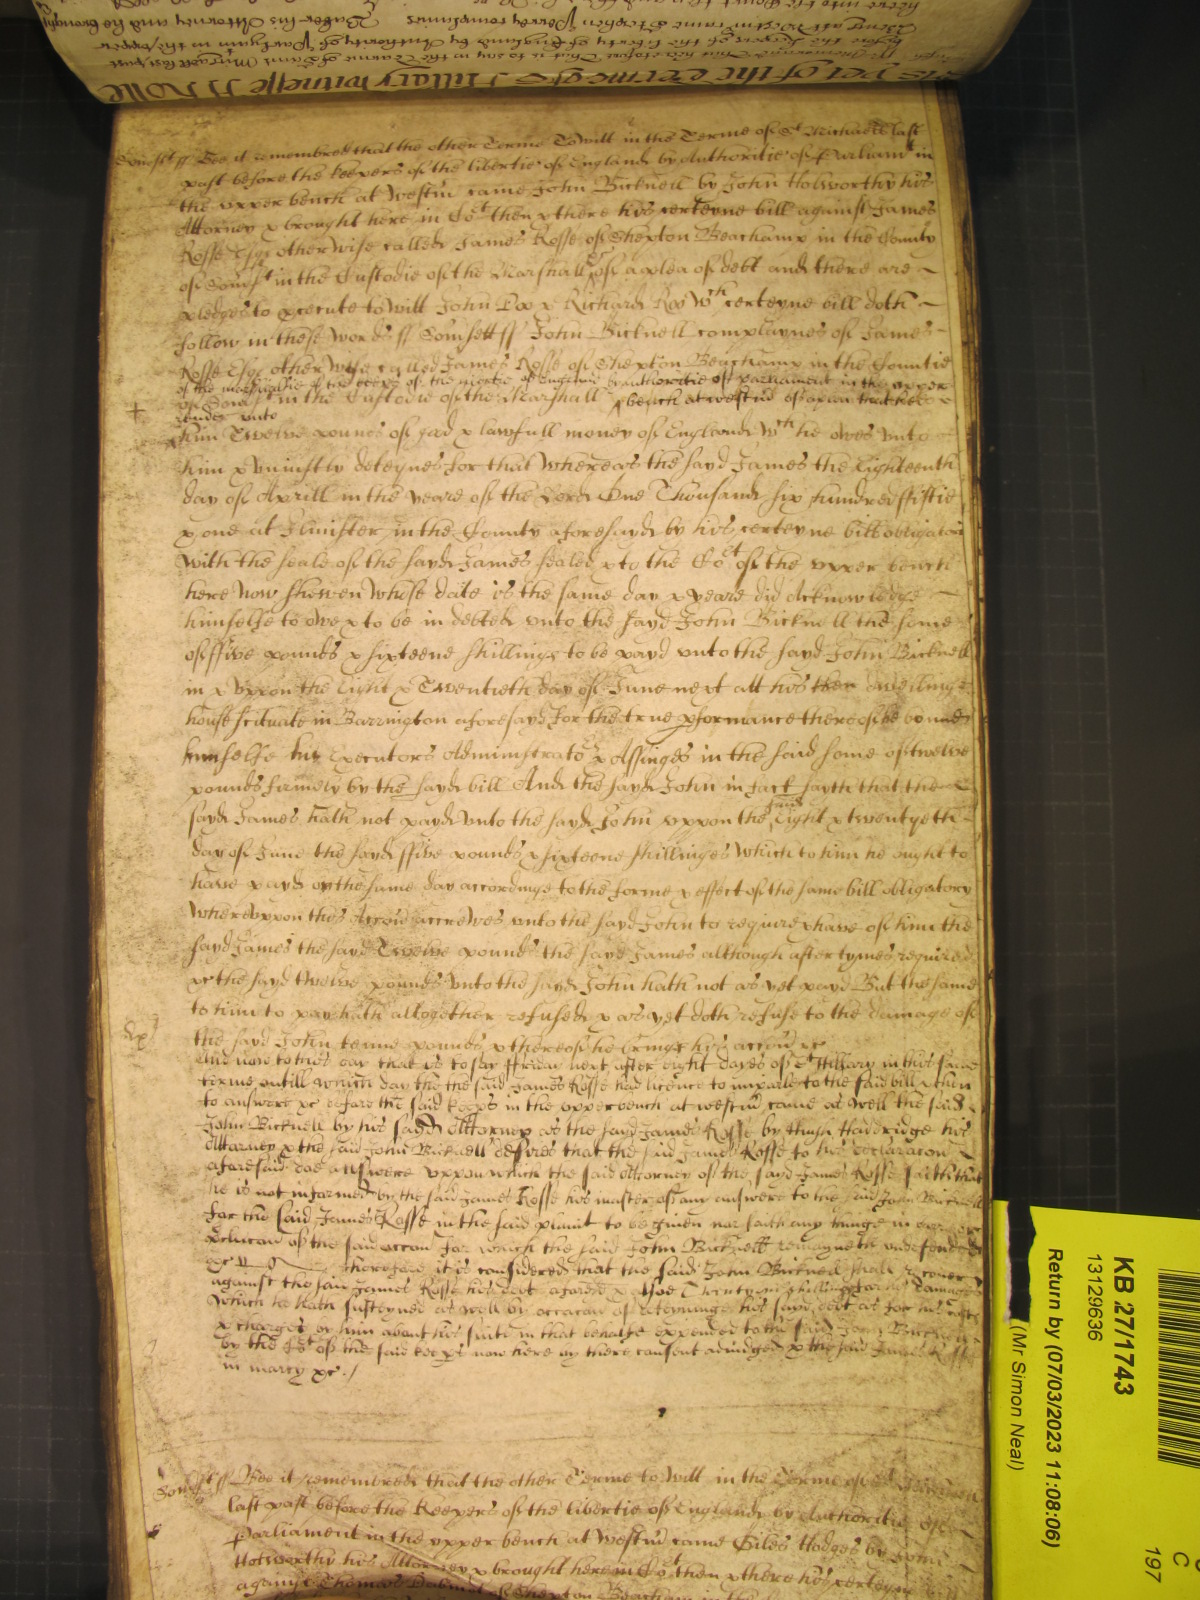 Somst ss Bee it remembred that the other Terme To Will in the Terme of St Michaell last
past before the keepers of the libertie of England by Authoritie of Parliamt in
the upper bench at Westm came John Bicknell by John Holworthy his
Attorney & brought here in Cot then & there his certeyne bill against James
Rosse Esqr otherwise called James Rosse of Shepton Beachamp in the County
of Somst in the Custodie of the Marshall &c of a plea of debt and there are
pledges to p̲secute to will John Doe & Richard Roo Wch certeyne bill doth
follow in these words ss Somsett ss John Bicknell complaynes of James
Rosse Esqr otherwise called James Rosse of Shepton Beachamp in the Countie
of the marshalsie of the keeps of the libertie of England by authoritie of parliament in the upper
of Somst in the Custodie of the Marshall bench at westm of a plea that hee
render unto
him Twelve pounds of good & lawfull money of England Wch he owes unto
him & uniustly deteynes for that Whereas the sayd James the Eighteenth
day of Aprill in the yeare of the Lord One Thousand six hundred fiftie
& one at Ilminster in the County aforesayd by his certeyne bill obligatorie
With the seale of the sayd James sealed & to the Cot of the upper bench
here now shewen Whose date is the same day & yeare did Acknowledge
himselfe to owe & to be in debted unto the sayd John Bicknell the some
of ffive pounds & sixteene shillings to be payd unto the sayd John Bicknell
in & uppon the Eight & Twentieth day of June next att his then dwellinge
house scituate in Barrington aforesayd for the true p̲formance thereof he bound
himselfe his Executors Administrators & Assignes in the said some of twelve
pounds firmely by the sayd bill And the sayd John in fact sayth that the
sayd James hath not payd unto the sayd John uppon the said Eight & twentyeth
day of June the sayd ffive pounds & sixteene shillinges Which to him he ought to
have payd on the same day accordinge to the forme & effect of the same bill obligatory
Whereuppon this Accon accrewes unto the sayd John to require & have of him the
sayd James the sayd Twelve pounds the sayd James although after tymes required
&c the sayd twelve pounds unto the sayd John hath not as yet payd But the same
to him to pay hath altogether refused & as yet doth refuse to the damage of
the sayd John tenne pounds & thereof he brings his accon &c
And now to this day that is to say ffriday next after eight dayes of St Hillary in this same
terme untill which day the the said James Rosse had licence to imparle to the said bill & then
to answere &c before the said keeps in the upper bench at westm came as well the said
John Bicknell by his said Attorney as the sayd James Rosse by Hugh Hardridge his
Attorney & the said John Bicknell desires that the said James Rosse to his declaracon
aforesaid doe answere uppon which the said Attorney of the sayd James Rosse saith that
he is not informed by the said James Rosse his master of any answere to the said John Bicknell
for the said James Rosse in the said plaint to be given nor saith any thinge in barr or
p̲clucon of the said accon for which the said John Bicknell remayneth undefended
&c therefore it is considered that the said John Bicknell shall recover
against the said James Rosse his debt aforesd & alsoe Twenty shillings for his damages
Which he hath susteyned as well by occacon of deteyninge his sayd debt as for his costs
& charges by him about his suite in that behalfe expended to the said John Bicknell
by the Cot of the said keeps now here by there consent adiudged & the said James Rosse
in marcy &c./
Somst ss Bee it remembred that the other Terme to Will in the Terme of St
last past before the Keepers of the libertie of England by Authoritie of
Parliament in the upper bench at Westm came Giles Hodges by John
Holworthy his Attorney & brought here in Cot then & there his certeyne
against Thomas of Shepton Beacham
KB 27/1743
13129636
Return by (07/03/2023 11:08:06)
(Mr Simon Neal)
C
197